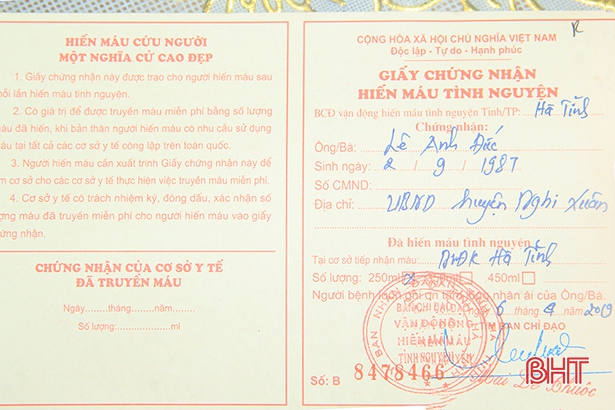 HIẾN MÁU CỨU NGƯỜI
MỘT NGHĨA CỬ CAO ĐẸP
1. Giấy chứng nhận này được trao cho người hiến máu sau
mỗi lần hiến máu tình nguyện.
2. Có giá trị để được truyền máu miễn phí bằng số lượng
máu đã hiến, khi bản thân người hiến máu có nhu cầu sử dụng
máu tại tất cả các cơ sở y tế công lập trên toàn quốc.
3. Người hiến máu cần xuất trình Giấy chứng nhận này để
làm cơ sở cho các cơ sở y tế thực hiện việc truyền máu miễn phí.
4. Cơ sở y tế có trách nhiệm ký, đóng dấu, xác nhận số
lượng máu đã truyền miễn phí cho người hiến máu vào giấy
chứng nhận.
CHỨNG NHẬN CỦA CƠ SỞ Y TẾ
ĐÃ TRUYỀN MÁU
Ngày........tháng........năm........
Số lượng:........ml
CỘNG HÒA XÃ HỘI CHỦ NGHĨA VIỆT NAM
Độc lập - Tự do - Hạnh phúc
GIẤY CHỨNG NHẬN
HIẾN MÁU TÌNH NGUYỆN
BCĐ vận động hiến máu tình nguyện Tỉnh/TP: Hà Tĩnh
Chứng nhận:
Ông/Bà: Lê Anh Đắc
Sinh ngày: 2 / 9 / 1987
Số CMND:
Địa chỉ: UBND huyện Nghi Xuân
Đã hiến máu tình nguyện
Tại cơ sở tiếp nhận máu: BVĐK Hà Tĩnh
Số lượng: 250ml 350ml 450ml
Người bệnh luôn ghi ơn tấm lòng nhân ái của Ông/Bà.
6 tháng 4 2019
TM BAN CHỈ ĐẠO
BAN CHỈ ĐẠO
VẬN ĐỘNG
HIẾN MÁU
TÌNH NGUYỆN
Số: B 8478466
BHT